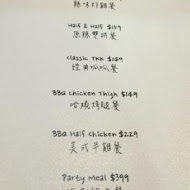 Half & Half $159
原辣雙拼餐
Classic TKK $149
經典呱呱餐
BBQ Chicken Thigh $149
BBQ Half Chicken $229
美式半雞餐
Party Meal $399